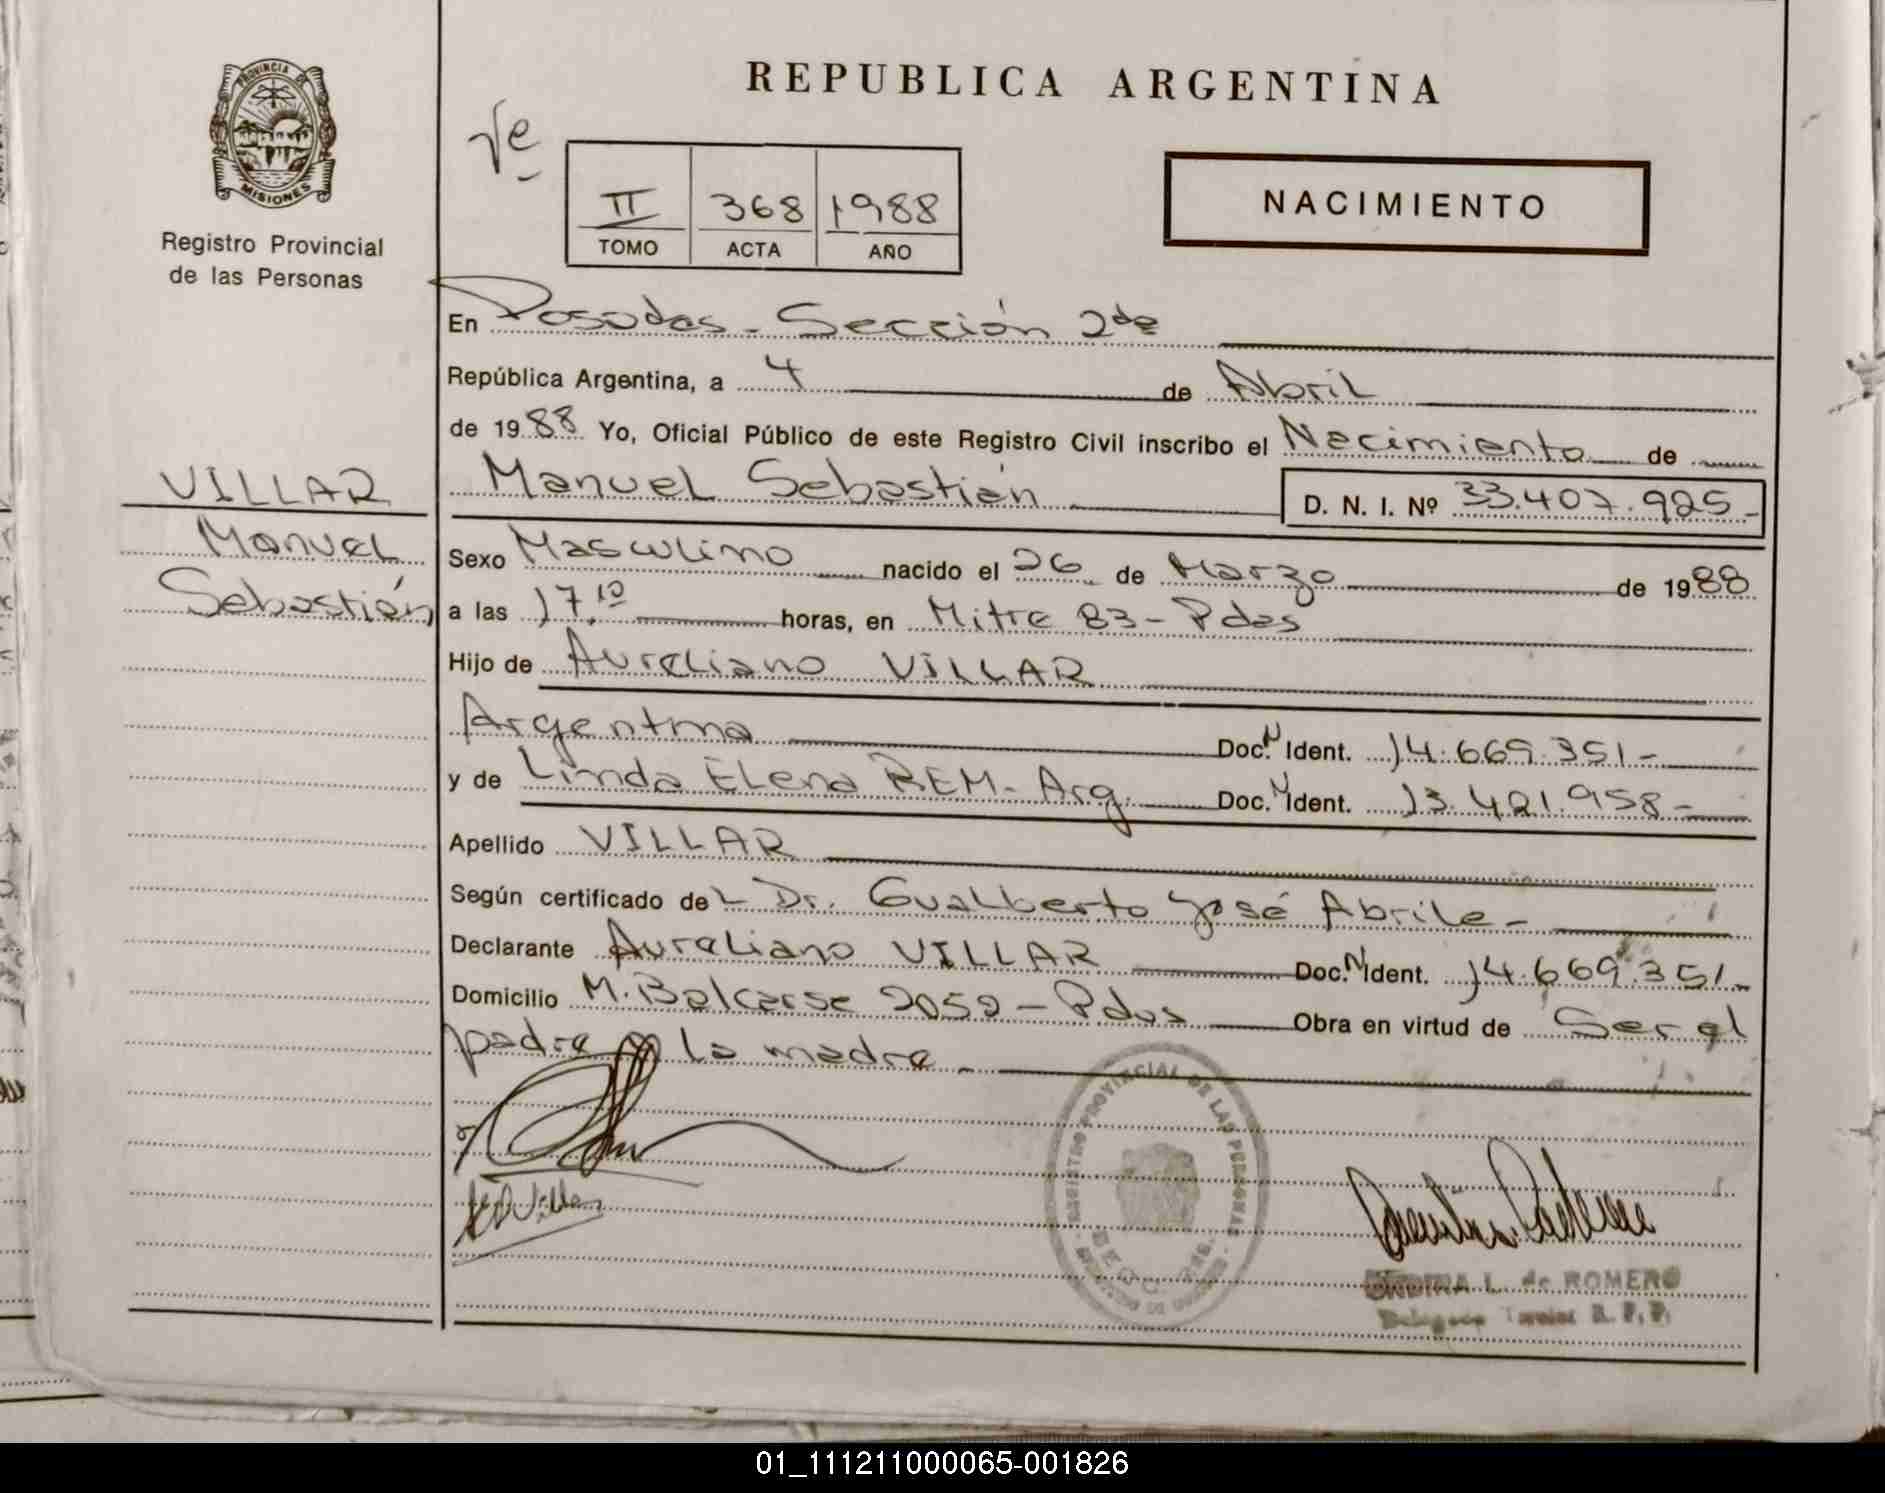 REPUBLICA ARGENTINA
PROVINCIA DE
MISIONES
Registro Provincial
de las Personas
II 368 1988
TOMO ACTA AÑO
NACIMIENTO
En Posadas - Sección 2da
República Argentina, a 4 de Abril
de 1988 Yo, Oficial Público de este Registro Civil inscribo el Nacimiento de
VILLAR
Manuel
Sebastián
Manuel Sebastián D. N. I. Nº 33.407.925-
Sexo Masculino nacido el 26 de Marzo de 1988
a las 17.10 horas, en Mitre 83 - Pdas
Hijo de Aureliano VILLAR
Argentino Doc. N Ident. 14.669.351-
y de Linda Elena REM - Arg. Doc. N Ident. 13.421.958-
Apellido VILLAR
Según certificado del Dr. Gualberto José Abrile -
Declarante Aureliano VILLAR Doc. N Ident. 14.669.351-
Domicilio M. Balcarse 2059 - Pdas Obra en virtud de Ser el
padre y la madre -
REGISTRO PROVINCIAL DE LAS PERSONAS
L. de ROMERO
R. P. P.
01_111211000065-001826